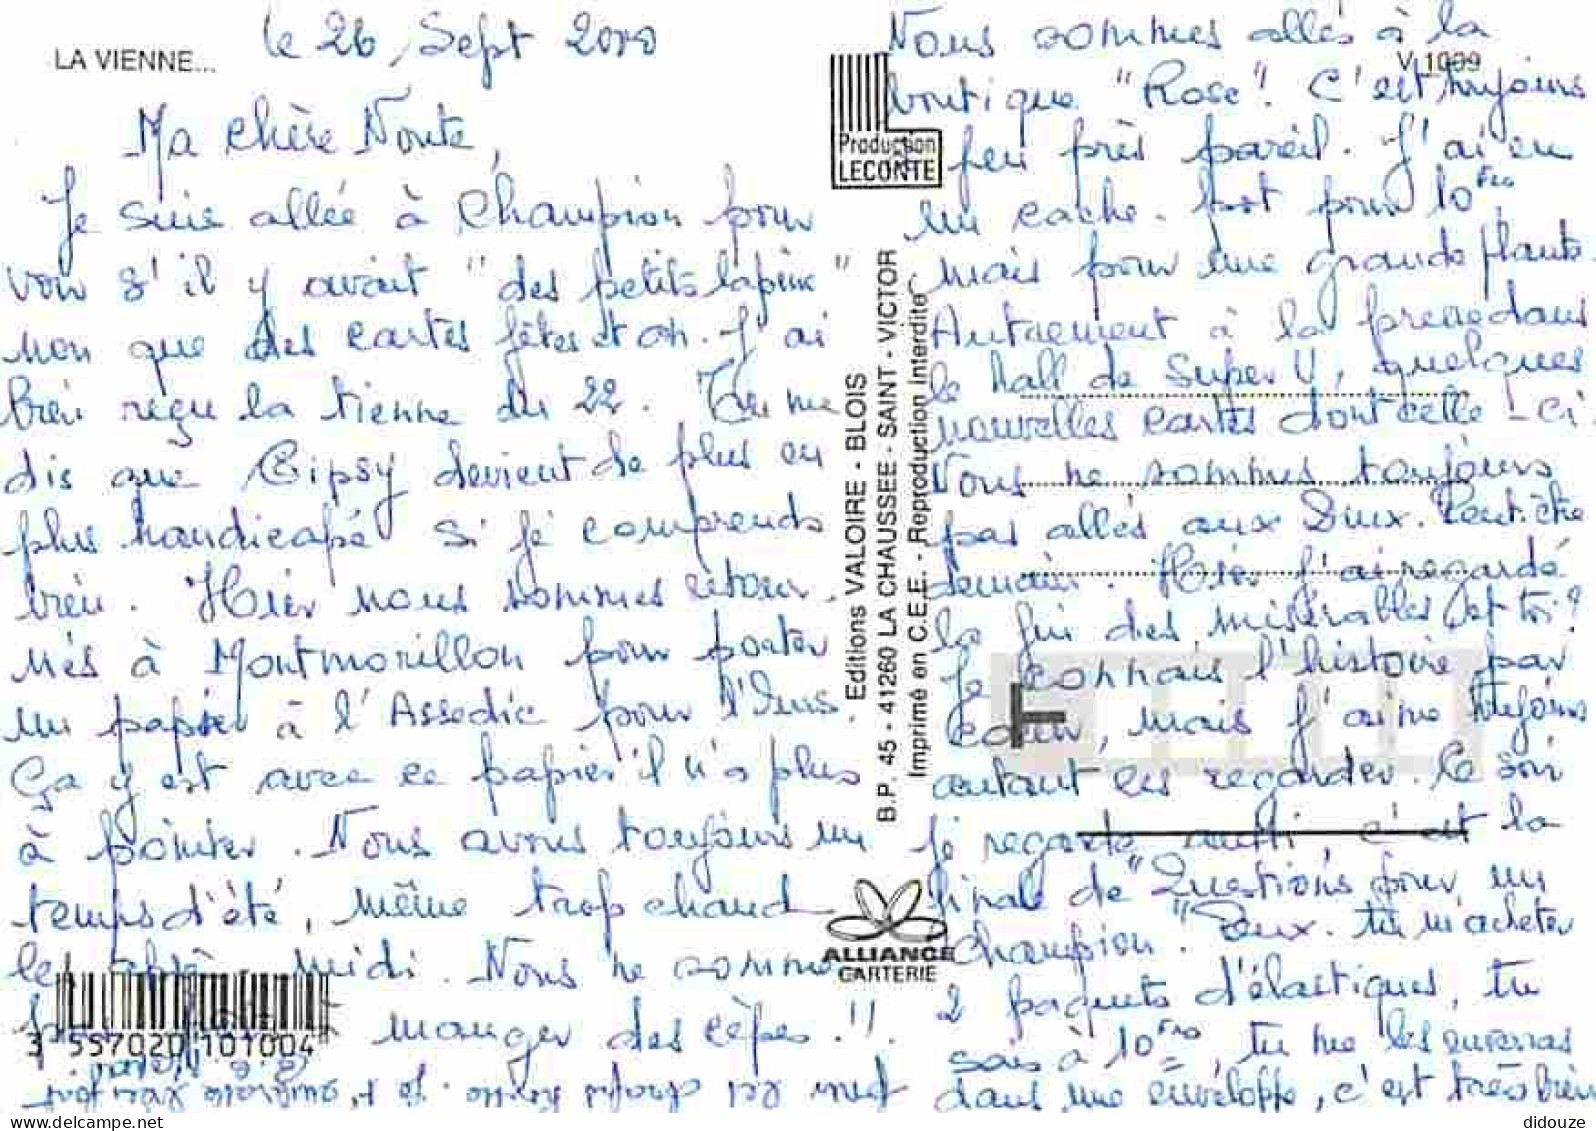 LA VIENNE...
le 26 Sept 2000
Ma chère Noute,
Je suis allée à Champion pour
voir s'il y avait "des petits lapins"
non que des cartes fêtes et an. J'ai
bien reçu la tienne du 22. Tu me
dis que Gipsy devient de plus en
plus handicapé si je comprends
bien. Hier nous sommes retour-
nés à Montmorillon pour porter
un papier à l'Assedic pour l'
Ça y est avec ce papier il n'a plus
à pointer. Nous avons toujours un
temps d'été, même trop chaud
les midi. Nous ne sommes
manger des cèpes.!!
3 557020 101004
Production
LECONTE
Editions VALOIRE - BLOIS
B.P. 45 - 41260 LA CHAUSSEE - SAINT - VICTOR
Imprimé en C.E.E. - Reproduction interdite
ALLIANCE
CARTERIE
V 1009
Nous sommes allés à la
boutique "Rose". C'est toujours
à peu près pareil. J'ai eu
un cache-pot pour 10 Frs
mais pour une grande plante.
Autrement à la presse dans
le hall de Super U, quelques
nouvelles cartes dont celle-ci.
Nous ne sommes toujours
pas allés aux Deux. Peut-être
demain. Hier j'ai regardé
la fin des misérables et toi?
Je connais l'histoire par
coeur, mais j'aime toujours
autant les regarder. Ce soir
je regarde aussi, c'est la
finale de "Questions pour un
champion". "Deux. tu m'acheter
2 paquets d'élastiques, tu
sais à 10 Frs, tu me les enverras
dans une enveloppe, c'est très bien
didouze